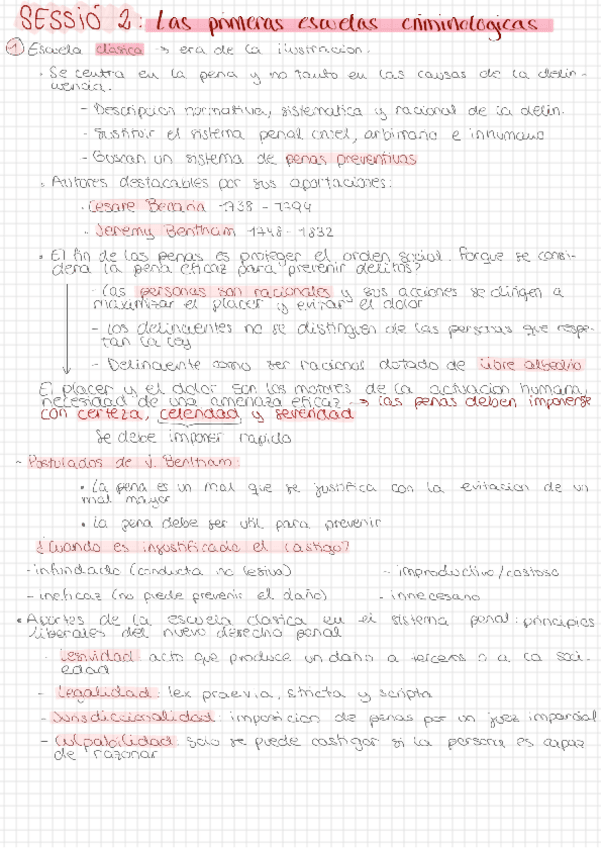 SESSIÓ 2: Las primeras escuelas criminologicas
① Escuela clasica → era de la ilustracion.
· Se centra en la pena y no tanto en las causas de la delin-
cuencia.
- Descripcion normativa, sistematica y racional de la delin.
- Sustituir el sistema penal cruel, arbitrario e inhumano
- Buscan un sistema de penas preventivas
· Autores destacables por sus aportaciones:
· Cesare Becaria 1738 - 1794
· Jeremy Bentham 1748 - 1832
· El fin de las penas es proteger el orden social. Porque se consi-
dera la pena eficaz para prevenir delitos?
- Las personas son racionales y sus acciones se dirigen a
maximizar el placer y evitar el dolor
- Los delincuentes no se distinguen de las personas que respe-
tan la ley
- Delincuente como ser racional dotado de libre albedrio
El placer y el dolor son los motores de la actuacion humana,
necesidad de una amenaza eficaz → las penas deben imponerse
con certeza, celeridad y severidad
Se debe imponer rapido
- Postulados de J. Bentham:
· La pena es un mal que se justifica con la evitacion de un
mal mayor
· La pena debe ser util para prevenir
¿Cuando es injustificado el castigo?
- infundado (conducta no lesiva) - improductivo/costoso
- ineficaz (no puede prevenir el daño) - innecesario
· Aportes de la escuela clasica en el sistema penal: principios
liberales del nuevo derecho penal
- Lesividad: acto que produce un daño a terceros o a la soci-
edad
- Legalidad: lex praevia, stricta y scripta
- Jurisdiccionalidad: imposicion de penas por un juez imparcial
- Culpabilidad: solo se puede castigar si la persona es capaz
de razonar